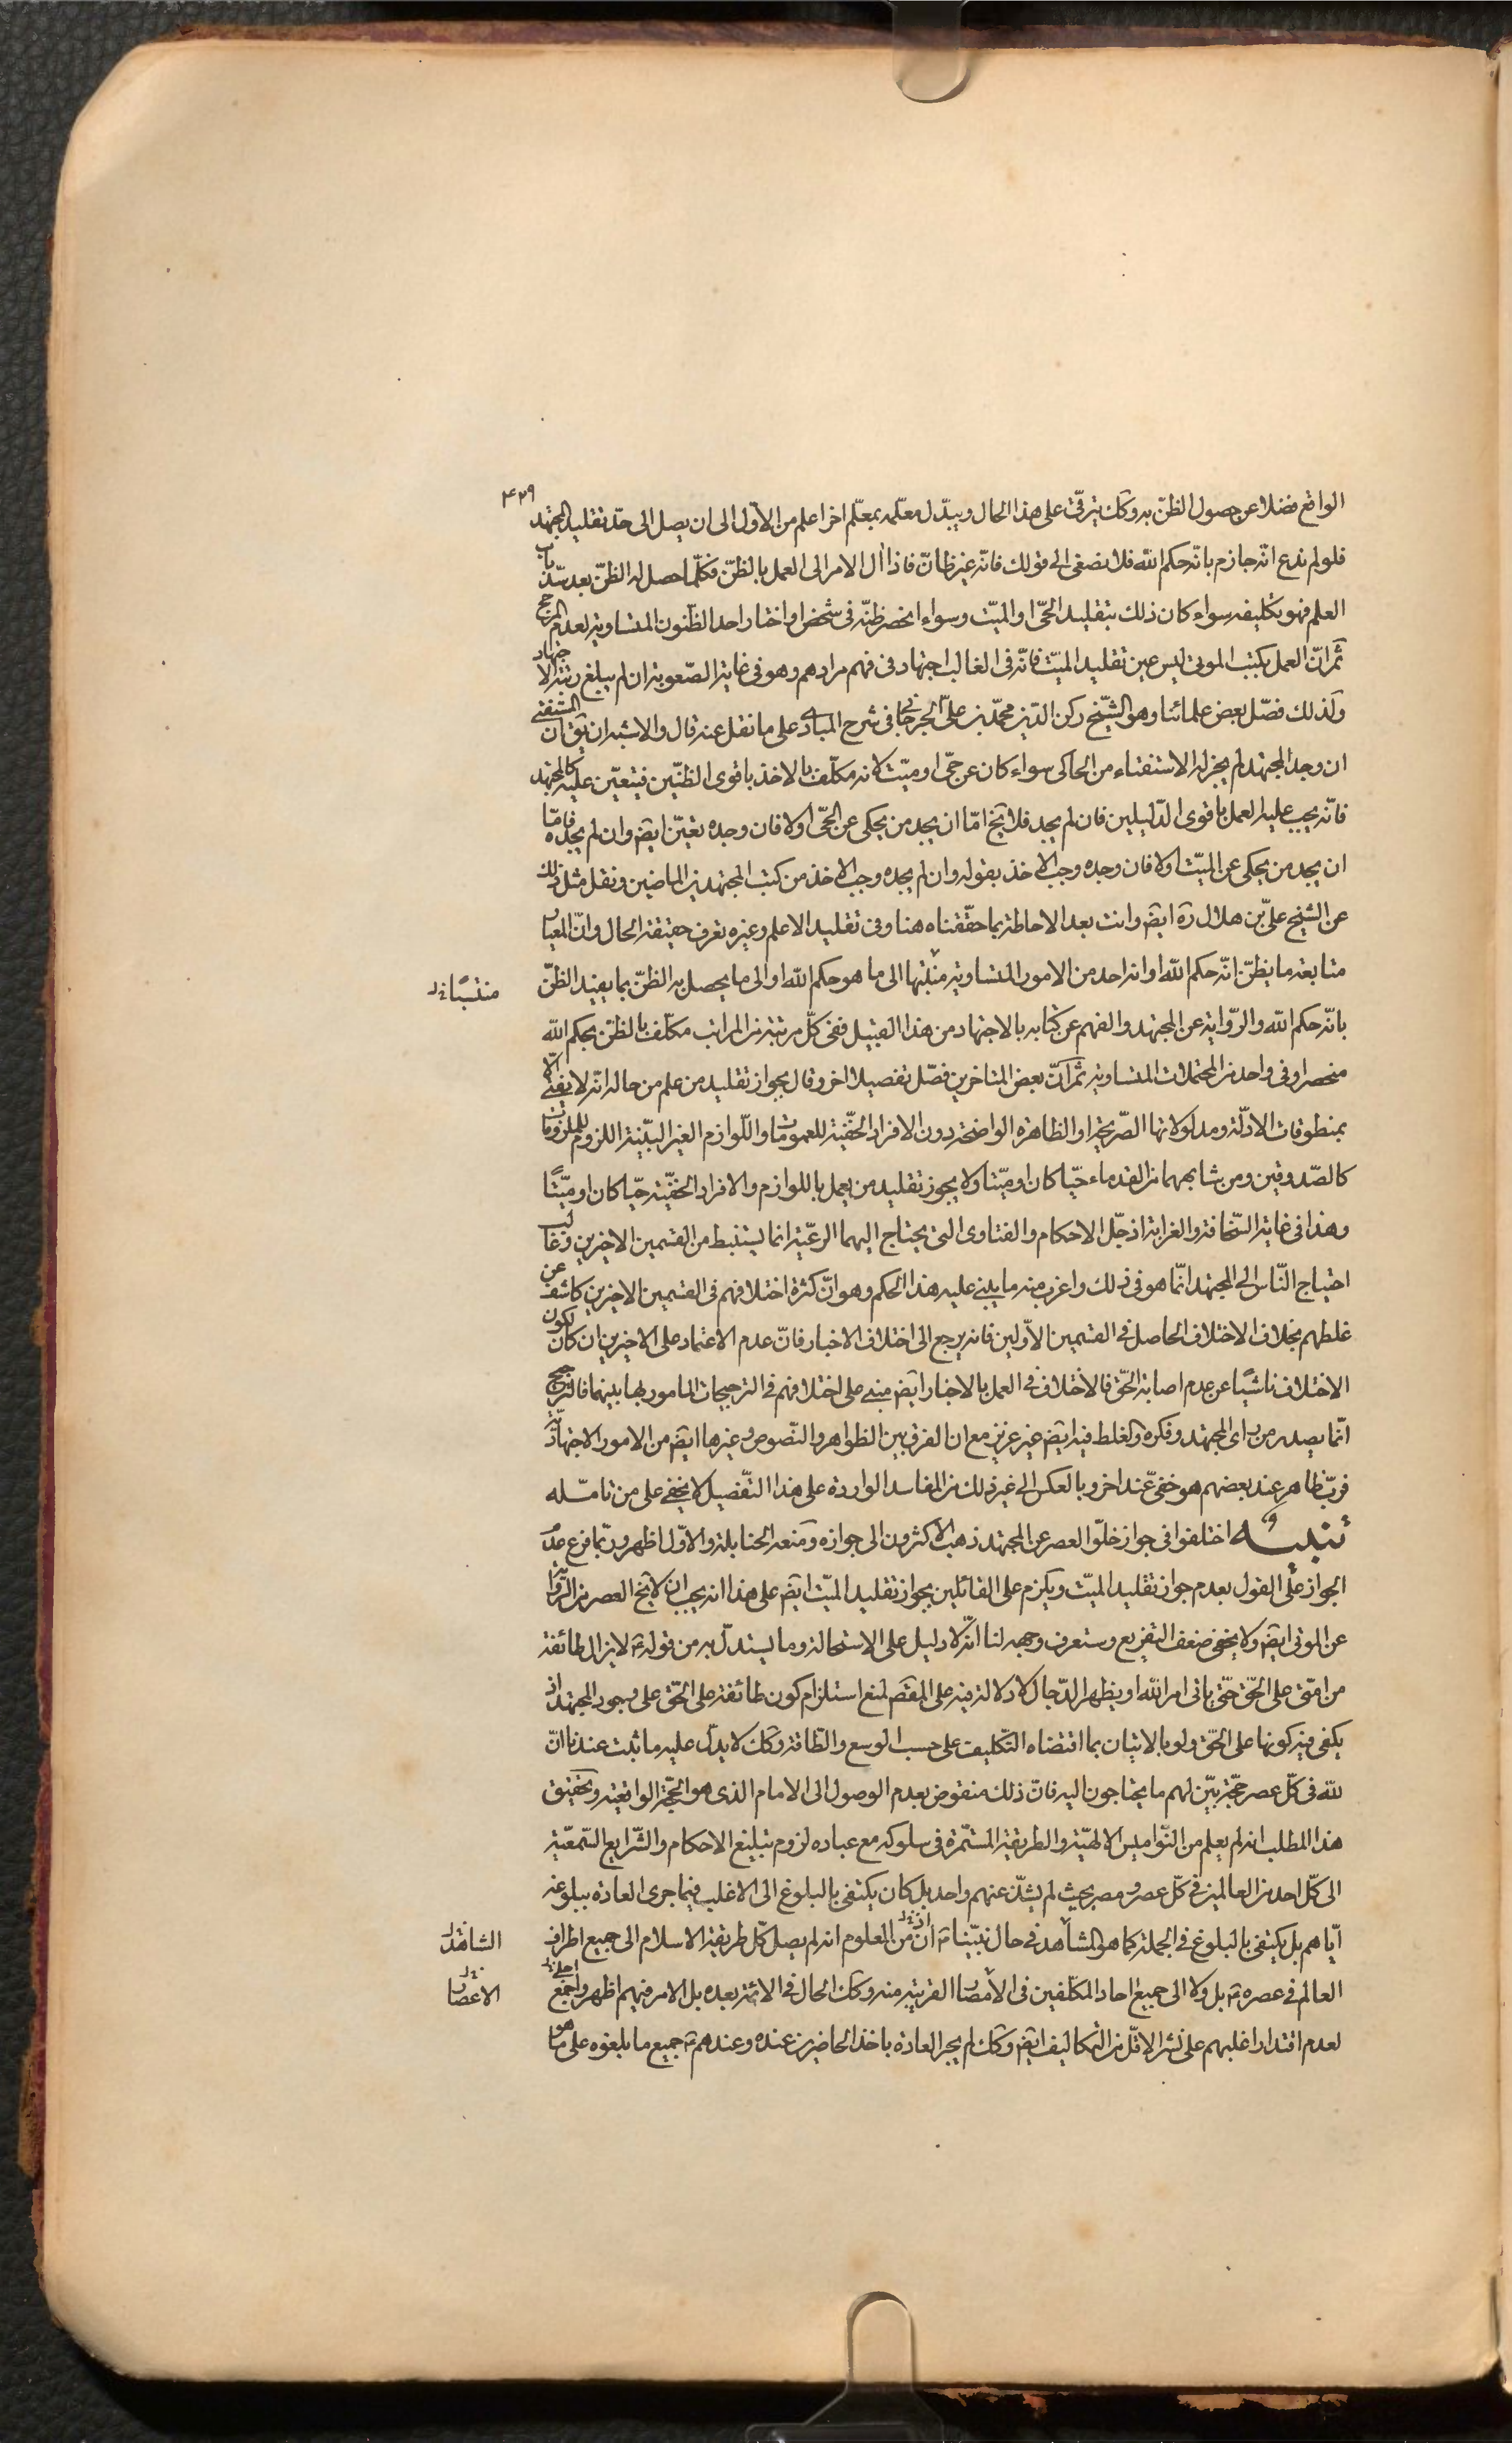 ۴۲۹
الواقع فضلا عن حصول الظنّ به وكك يترقّى على هذا الحال ويبدّل معلّمه بمعلّم اخر اعلم من الاوّل الى ان يصل الى حدّ تقليد المجتهد
فلو لم ندع انّه جازم بانّه حكم الله فلا نصغى الى قولك فانّه غير ظانّ فاذا ال الامر الى العمل بالظنّ فكلّما حصل له الظنّ بعد سدّ باب
العلم فهو تكليفه سواء كان ذلك بتقليد الحىّ او الميّت وسواء انحصر ظنّه فى شخص او اختار احد الظّنون المتساوية لعدم المرجح
ثمّ انّ العمل بكتب الموتى ليس عين تقليد الميّت فانّه فى الغالب اجتهاد فى فهم مرادهم وهو فى غاية الصّعوبة ان لم يبلغ رتبة الاجتهاد
ولذلك فصّل بعض علمائنا وهو الشّيخ ركن الدّين محمّد بن علىّ الجرجانى فى شرح المبادى على ما نقل عنه قال والاشبه ان يق ان المستفتى
ان وجد المجتهد لم يجز له الاستفتاء من الحاكى سواء كان عن حىّ او ميّت لانه مكلّف بالاخذ باقوى الظنّين فيتعيّن عليه كالمجتهد
فانّه يجب عليه العمل باقوى الدّليلين فان لم يجد فلا يخ امّا ان يجد من يحكى عن الحىّ او لا فان وجده تعيّن ايض وان لم يجده فامّا
ان يجد من يحكى عن الميّت او لا فان وجده وجب الاخذ بقوله وان لم يجده وجب الاخذ من كتب المجتهدين الماضين ونقل مثل ذلك
عن الشيخ علىّ بن هلال ره ايض وانت بعد الاحاطة بما حقّقناه هنا وفى تقليد الاعلم وغيره تعرف حقيقة الحال وانّ المعيار
متابعة ما يظنّ انّه حكم الله او انه احد من الامور المتساوية منتبها الى ما هو حكم الله او الى ما يحصل به الظنّ بما يفيد الظنّ
منتسبًا خ‌ل
بانّه حكم الله والرّواية عن المجتهد والفهم عن كتابه بالاجتهاد من هذا القبيل ففى كلّ مرتبة من المراتب مكلّف بالظنّ بحكم الله
منحصرا وفى واحد من المحتملات المتساوية ثمّ انّ بعض المتاخرين فصّل تفصيلا اخر وقال بجواز تقليد من علم من حاله انّه لا يفتى الّا
بمنطوقات الادلّة ومدلولاتها الصّريحة او الظاهرة الواضحة دون الافراد الخفيّة للعمومات او اللّوازم الغير البيّنة اللزوم للملزومات
كالصّدوقين ومن شابههما من القدماء حيّا كان او ميّتا ولا يجوز تقليد من يعمل باللوازم والافراد الخفيّة حيّا كان او ميّتًا
وهذا فى غاية السّخافة والغرابة اذ جلّ الاحكام والفتاوى التى يحتاج اليهما الرعيّة انما يستنبط من القسمين الاخيرين وغالب
احتياج النّاس الى المجتهد انّما هو فى ذلك واغرب منه ما يبنى عليه هذا الحكم وهو انّ كثرة اختلافهم فى القسمين الاخيرين كاشف عن
غلطهم بخلاف الاختلاف الحاصل فى القسمين الاوّلين فانه يرجع الى اختلاف الاخبار فانّ عدم الاعتماد على الاخيرين ان كان لكون
الاختلاف ناشيًا عن عدم اصابة الحقّ فالاختلاف فى العمل بالاخبار ايض مبنى على اختلافهم فى الترجيحات المامور بها بينهما فالترجيح
انّما يصدر من راى المجتهد وفكره والغلط فيه ايض غير عزيز مع ان الفرق بين الظواهر والنّصوص وغيرها ايض من الامور الاجتهاديّة
فربّ ظاهر عند بعضهم هو خفىّ عند اخر وبالعكس الى غير ذلك من المفاسد الواردة على هذا التّفصيل لا يخفى على من تامّله
تنبيه اختلفوا فى جواز خلوّ العصر عن المجتهد ذهب الاكثرون الى جوازه ومنعه الحنابلة والاوّل اظهر وربّما فرع عدم
الجواز على القول بعدم جواز تقليد الميّت ويلزم على القائلين بجواز تقليد الميّت ايض على هذا انه يجب ان لا يخ العصر من الرّواية
عن الموتى ايض ولا يخفى ضعف التفريع وستعرف وجهه لنا انّه لا دليل على الاستحالة وما يستدلّ به من قوله ص لا يزال طائفة
من امّتى على الحقّ حتّى ياتى امر الله او يظهر الدّجال لا دلالة فيه على المقصم لمنع استلزام كون طائفة على الحقّ على وجود المجتهد اذ
يكفى فيه كونها على الحقّ ولو بالاتيان بما اقتضاه التّكليف على حسب الوسع والطّاقة وكك لا يدلّ عليه ما ثبت عندنا انّ
لله فى كلّ عصر حجّة يبيّن لهم ما يحتاجون اليه فانّ ذلك منقوض بعدم الوصول الى الامام الذى هو الحجّة الواقعيّة وتحقيق
هذا المطلب انه لم يعلم من النّواميس الالهيّة والطريقة المستمّرة فى سلوكه مع عباده لزوم تبليغ الاحكام والشّرايع السّمعيّة
الى كلّ احد من العالمين فى كلّ عصر ومصر بحيث لم يشذّ عنهم واحد بل كان يكتفى بالبلوغ الى الاغلب فيما جرى العادة ببلوغه
ايّاهم بل يكتفى بالبلوغ فى الجملة كما هو المشاهد فى حال نبيّنا ص اذ من المعلوم انه لم يصل كلّ طريقة الاسلام الى جميع اطراف
الشاهد خ‌ل
العالم فى عصره ص بل ولا الى جميع احاد المكلّفين فى الامصار القريبة منه وكك الحال فى الائمّة بعده بل الامر فيهم اظهر واجمع
الاعصار خ‌ل
لعدم اقتدار اغلبهم على نشر الاقلّ من التكاليف ايض وكك لم يجر العادة باخذ الحاضرين عنده وعندهم جميع ما بلغوه على ما هو